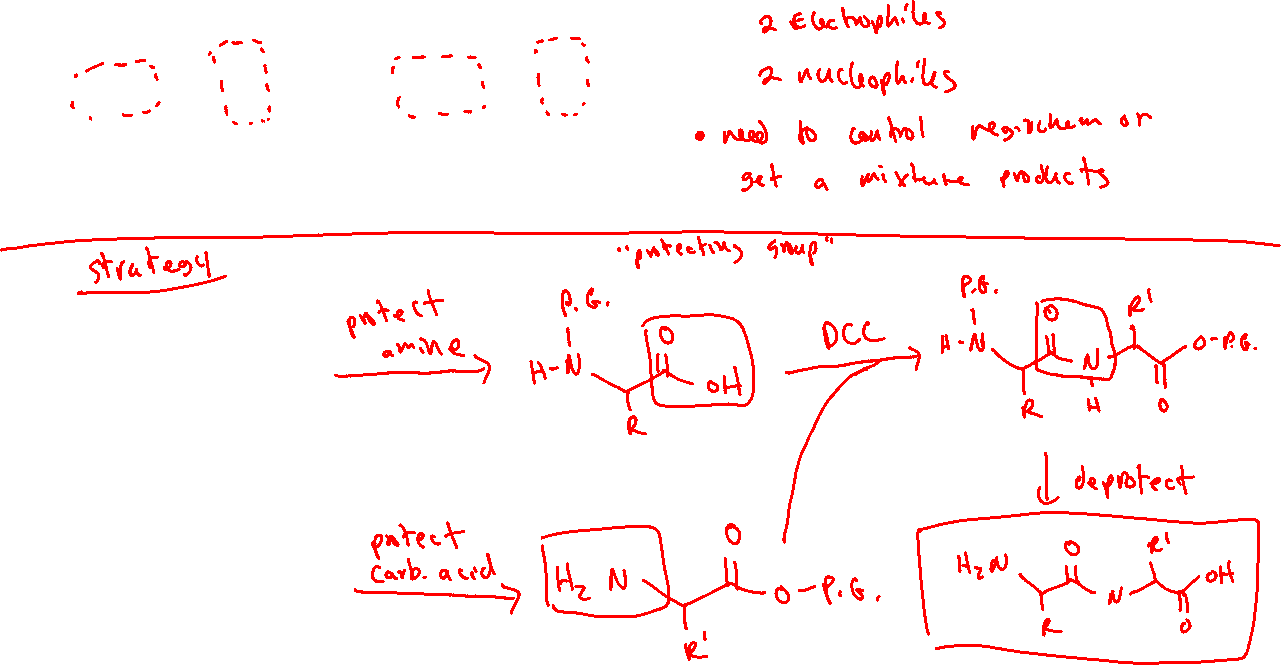 2 Electrophiles
2 nucleophiles
• need to control regiochem or
get a mixture products
strategy
"protecting group"
protect
amine
P.G.
H-N
O
OH
R
DCC
P.G.
H-N
O
N
H
R
R'
O-P.G.
O
deprotect
protect
carb. acid
H2N
O
O-P.G.
R'
H2N
O
R
N
R'
OH
O